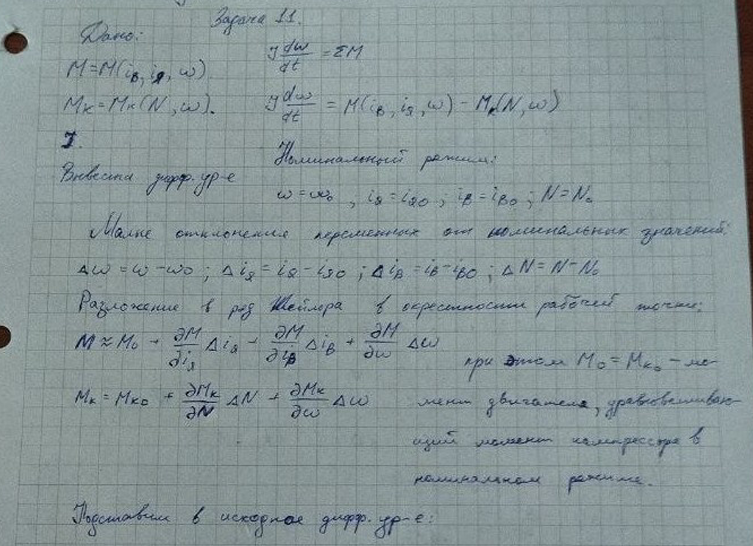 Задача 11.
Дано:
J dω/dt = ΣM
M = M(iв, iя, ω)
Mк = Mк(N, ω).
J dω/dt = M(iв, iя, ω) − Mк(N, ω)
J.
Вывести дифф. ур-е
Номинальный режим:
ω = ω₀ ; iя = iя₀ ; iв = iв₀ ; N = N₀
Малые отклонения переменных от номинальных значений:
Δω = ω − ω₀ ; Δiя = iя − iя₀ ; Δiв = iв − iв₀ ; ΔN = N − N₀
Разложение в ряд Тейлора в окрестности рабочей точки:
M ≈ M₀ + ∂M/∂iя Δiя + ∂M/∂iв Δiв + ∂M/∂ω Δω
при этом M₀ = Mк₀ – мо-
Mк = Mк₀ + ∂Mк/∂N ΔN + ∂Mк/∂ω Δω
мент двигателя, уравновешиваю-
щий момент компрессора в
номинальном режиме.
Подставим в исходное дифф. ур-е: